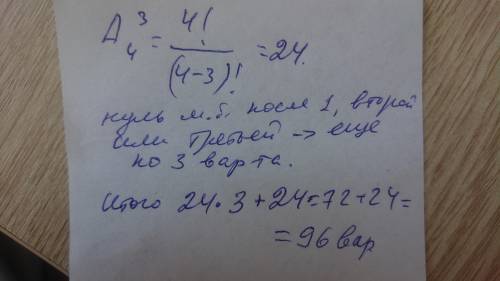 A₄³ = 4! / (4-3)! = 24.
нуль м.б. после 1, второй
или третьей → еще
по 3 вар-та.
Итого 24·3+24=72+24=
=96 вар